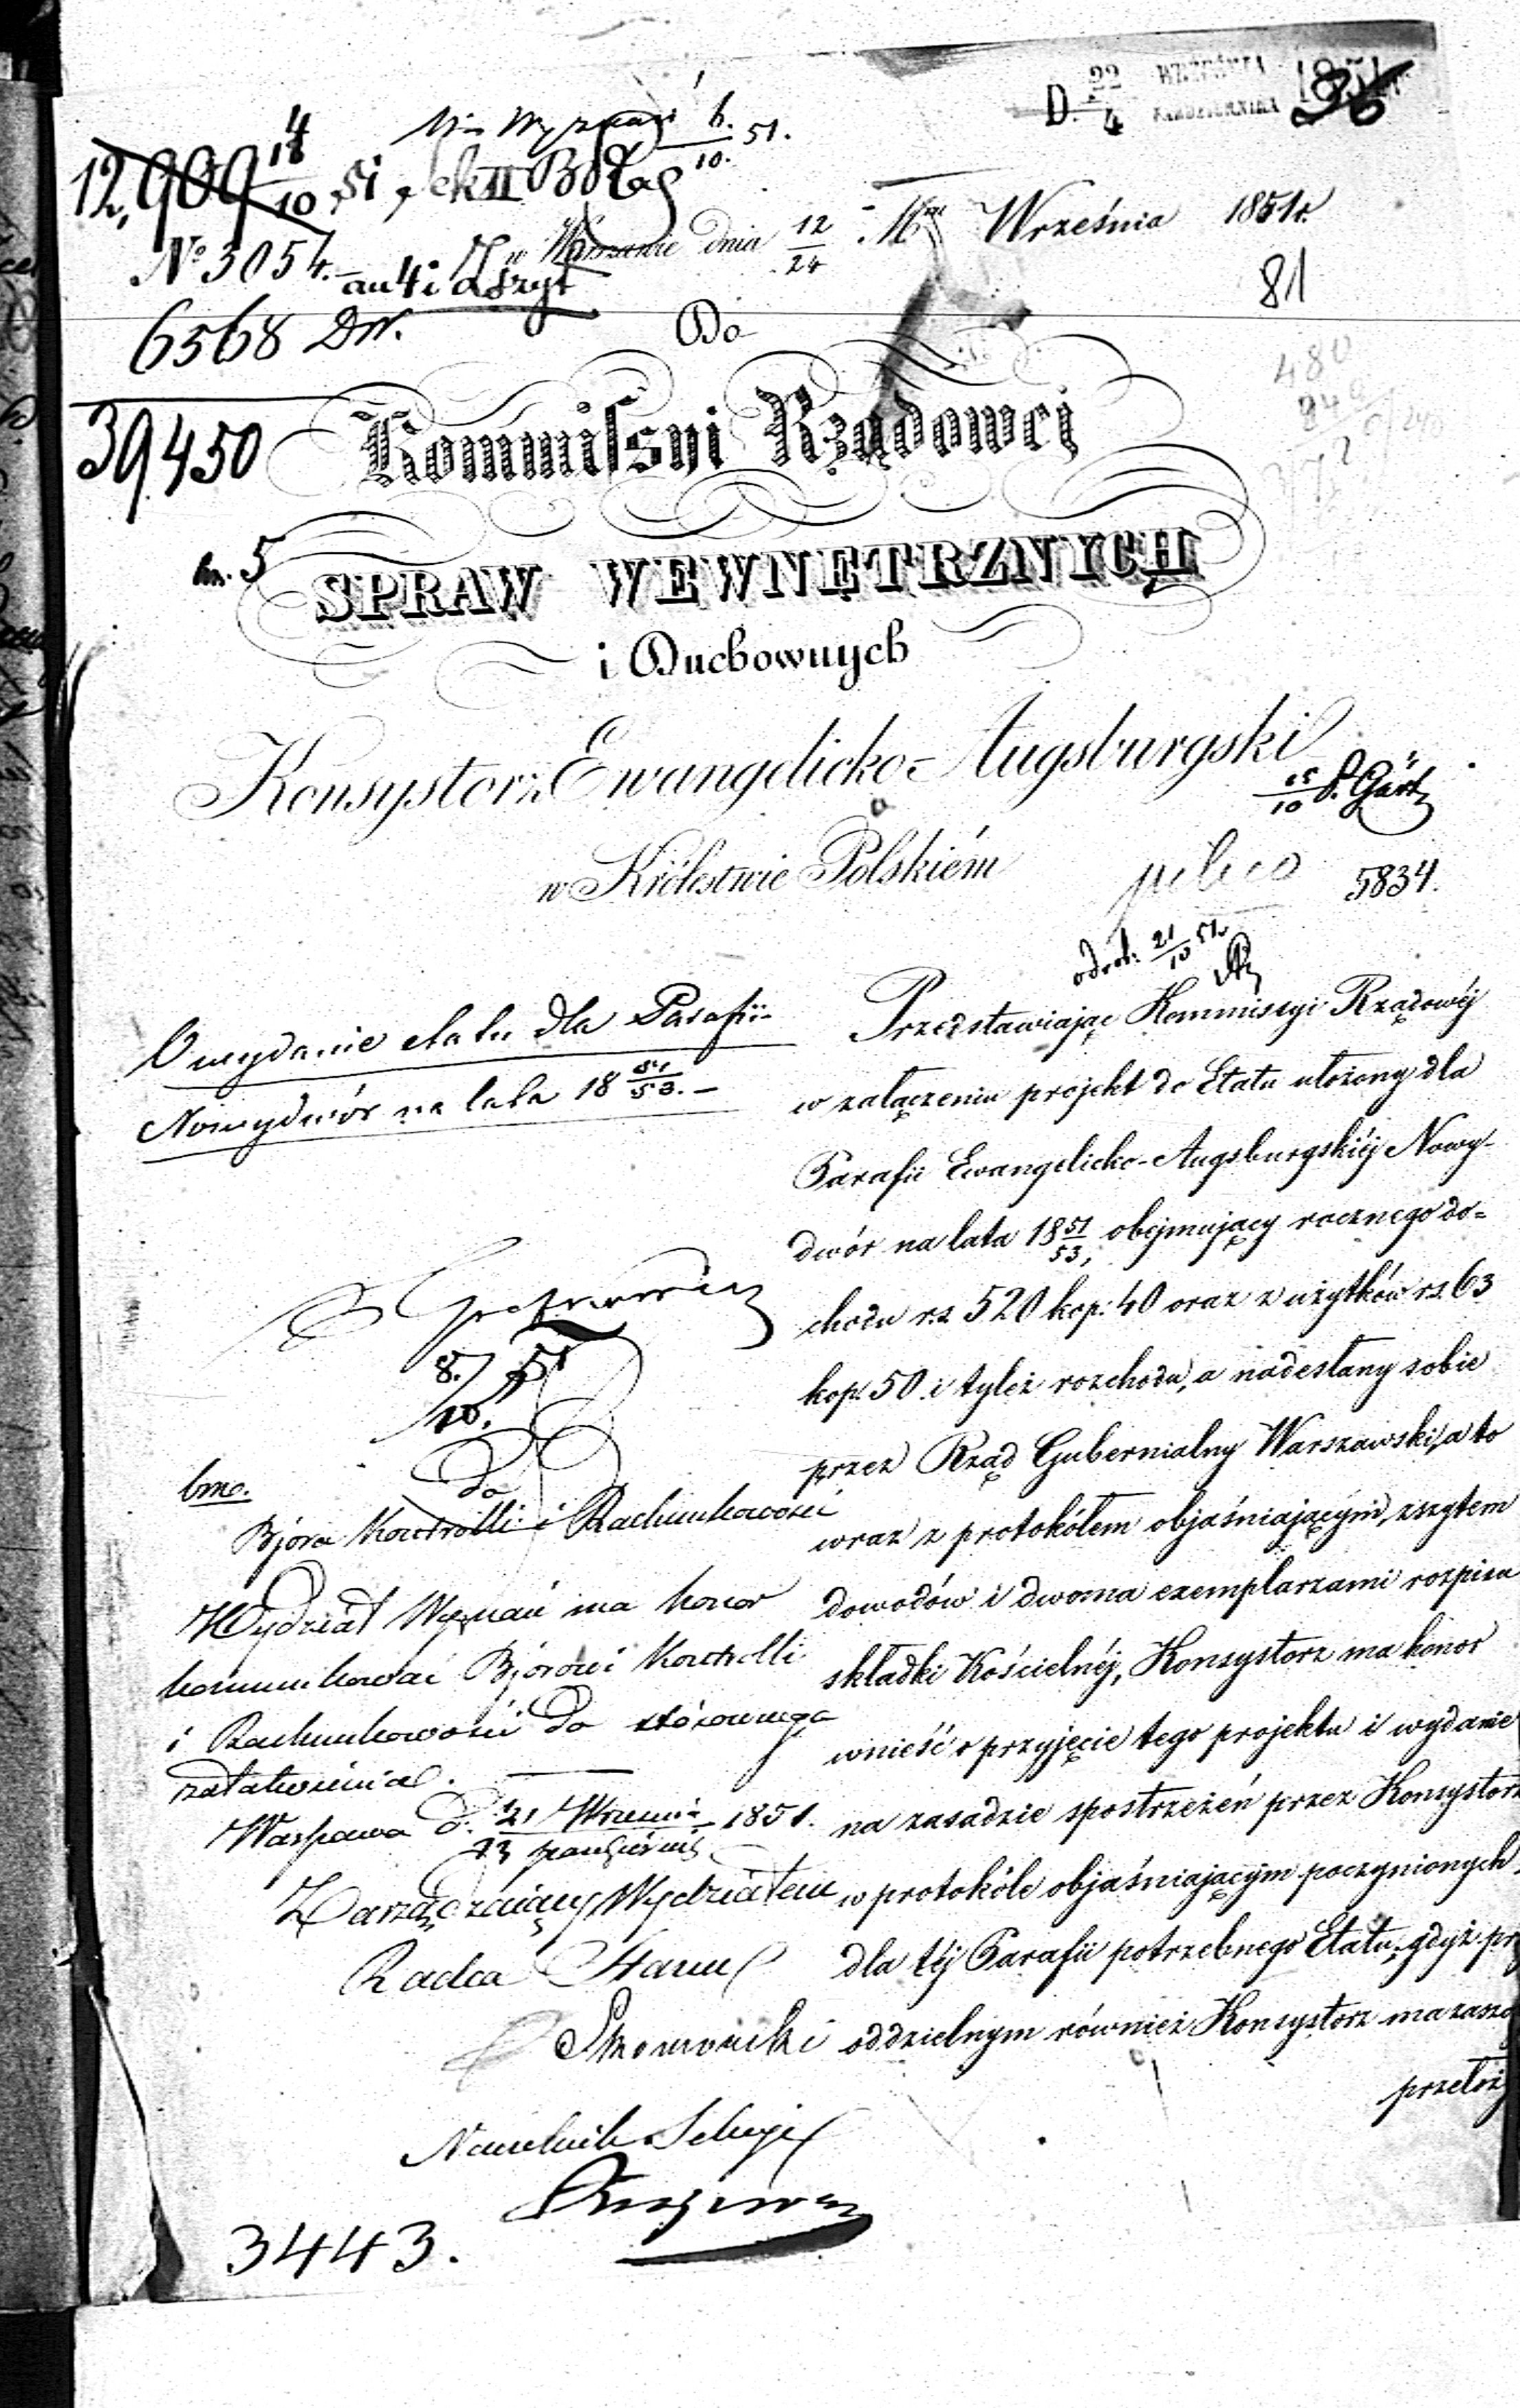 D. 22/4 WRZEŚNIA PAŹDZIERNIKA 1851
36
Wyznań 6./10. 51.
12,909 18/10 51
w Warszawie dnia 12/24 Września 1851 r.
N° 3054.
81
6568 DW.
Do
39,450
Kommissyi Rządowej
5
SPRAW WEWNĘTRZNYCH
i Duchownych
Konsystorz Ewangelicko-Augsburgski
w Królestwie Polskiém
5834.
odrob: 21/10 51
O wydanie etatu dla Parafii
Nowydwór na lata 18 51/53. –
Przedstawiając Kommissyi Rządowéj
w załączeniu projekt do Etatu ułożony dla
Parafii Ewangelicko-Augsburgskiéj Nowy-
dwór na lata 18 51/53, obejmujący rocznego do=
chodu rs. 520 kop: 40 oraz z użytków rs. 63
kop. 50 i tyleż rozchodu, a nadesłany sobie
przez Rząd Gubernialny Warszawski, a to
wraz z protokółem objaśniającym, zszytem
dowodów i dwoma exemplarzami rozpisu
składki Kościelnéj, Konsystorz ma honor
wnieść o przyjęcie tego projektu i wydanie
na zasadzie spostrzeżeń przez Konsystorz
w protokóle objaśniającym poczynionych,
dla téj Parafii potrzebnego Etatu, gdyż
oddzielnym również Konsystorz ma
8./10. 51
Do
Bióra Kontrolli i Rachunkowości
Wydział Wyznań ma honor
kommunikować Biórowi Kontrolli
i Rachunkowości do stósownego
załatwienia. —
Warszawa d. 21 Września 1851.
Zarządzający Wydziałem
Radca Stanu
Naczelnik Sekcyi
3443.